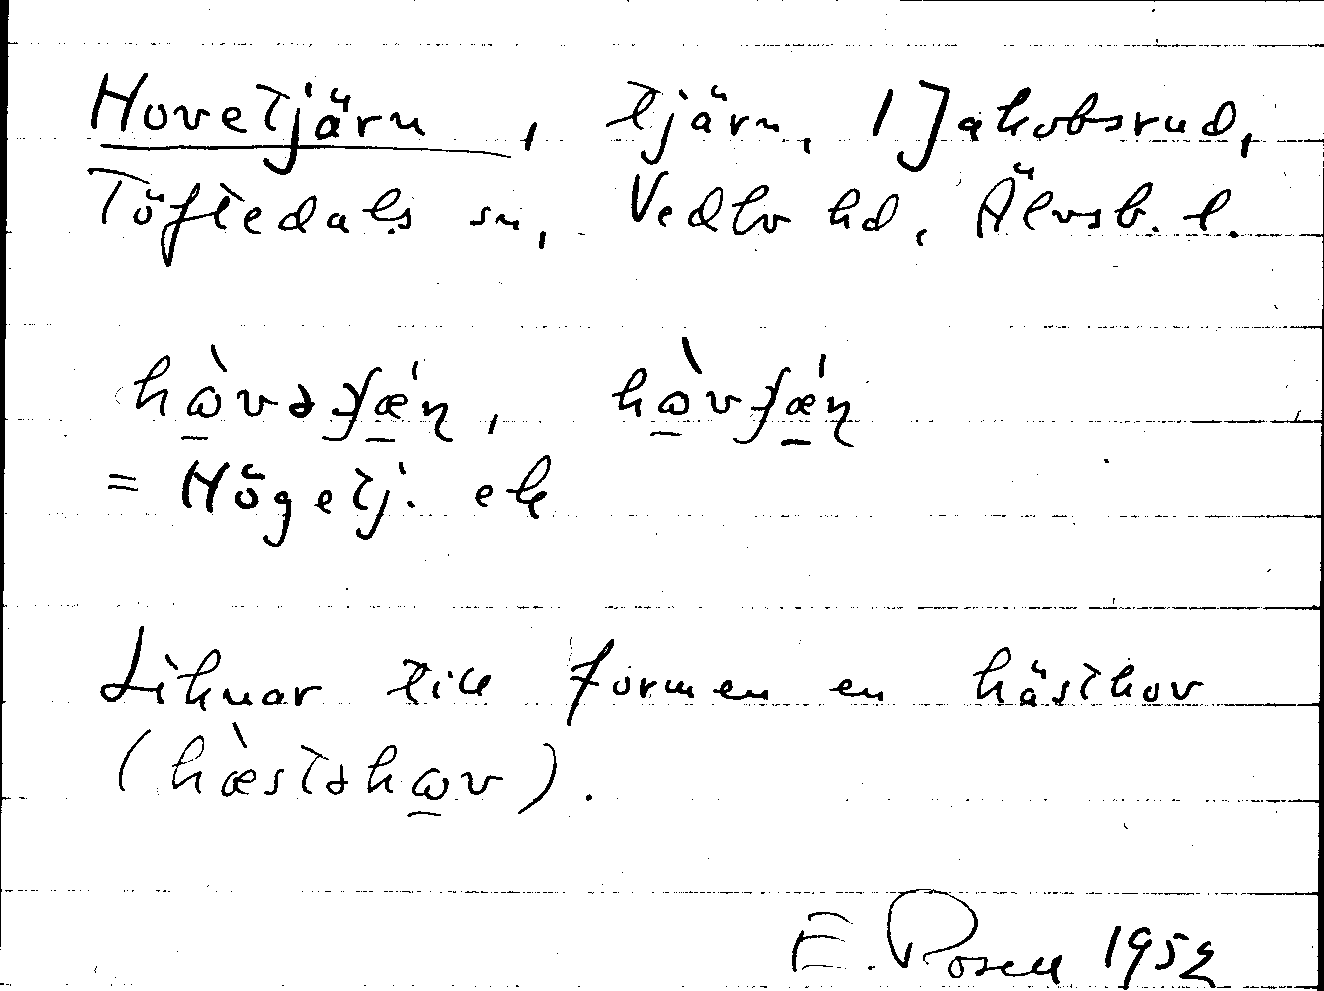 Hovetjärn, tjärn, / Jakobsrud,
Töftedals sn, Vedbo hd, Älvsb. l.
= Högetj. ek
Liknar till formen en hästhov
E. Rosell 1952